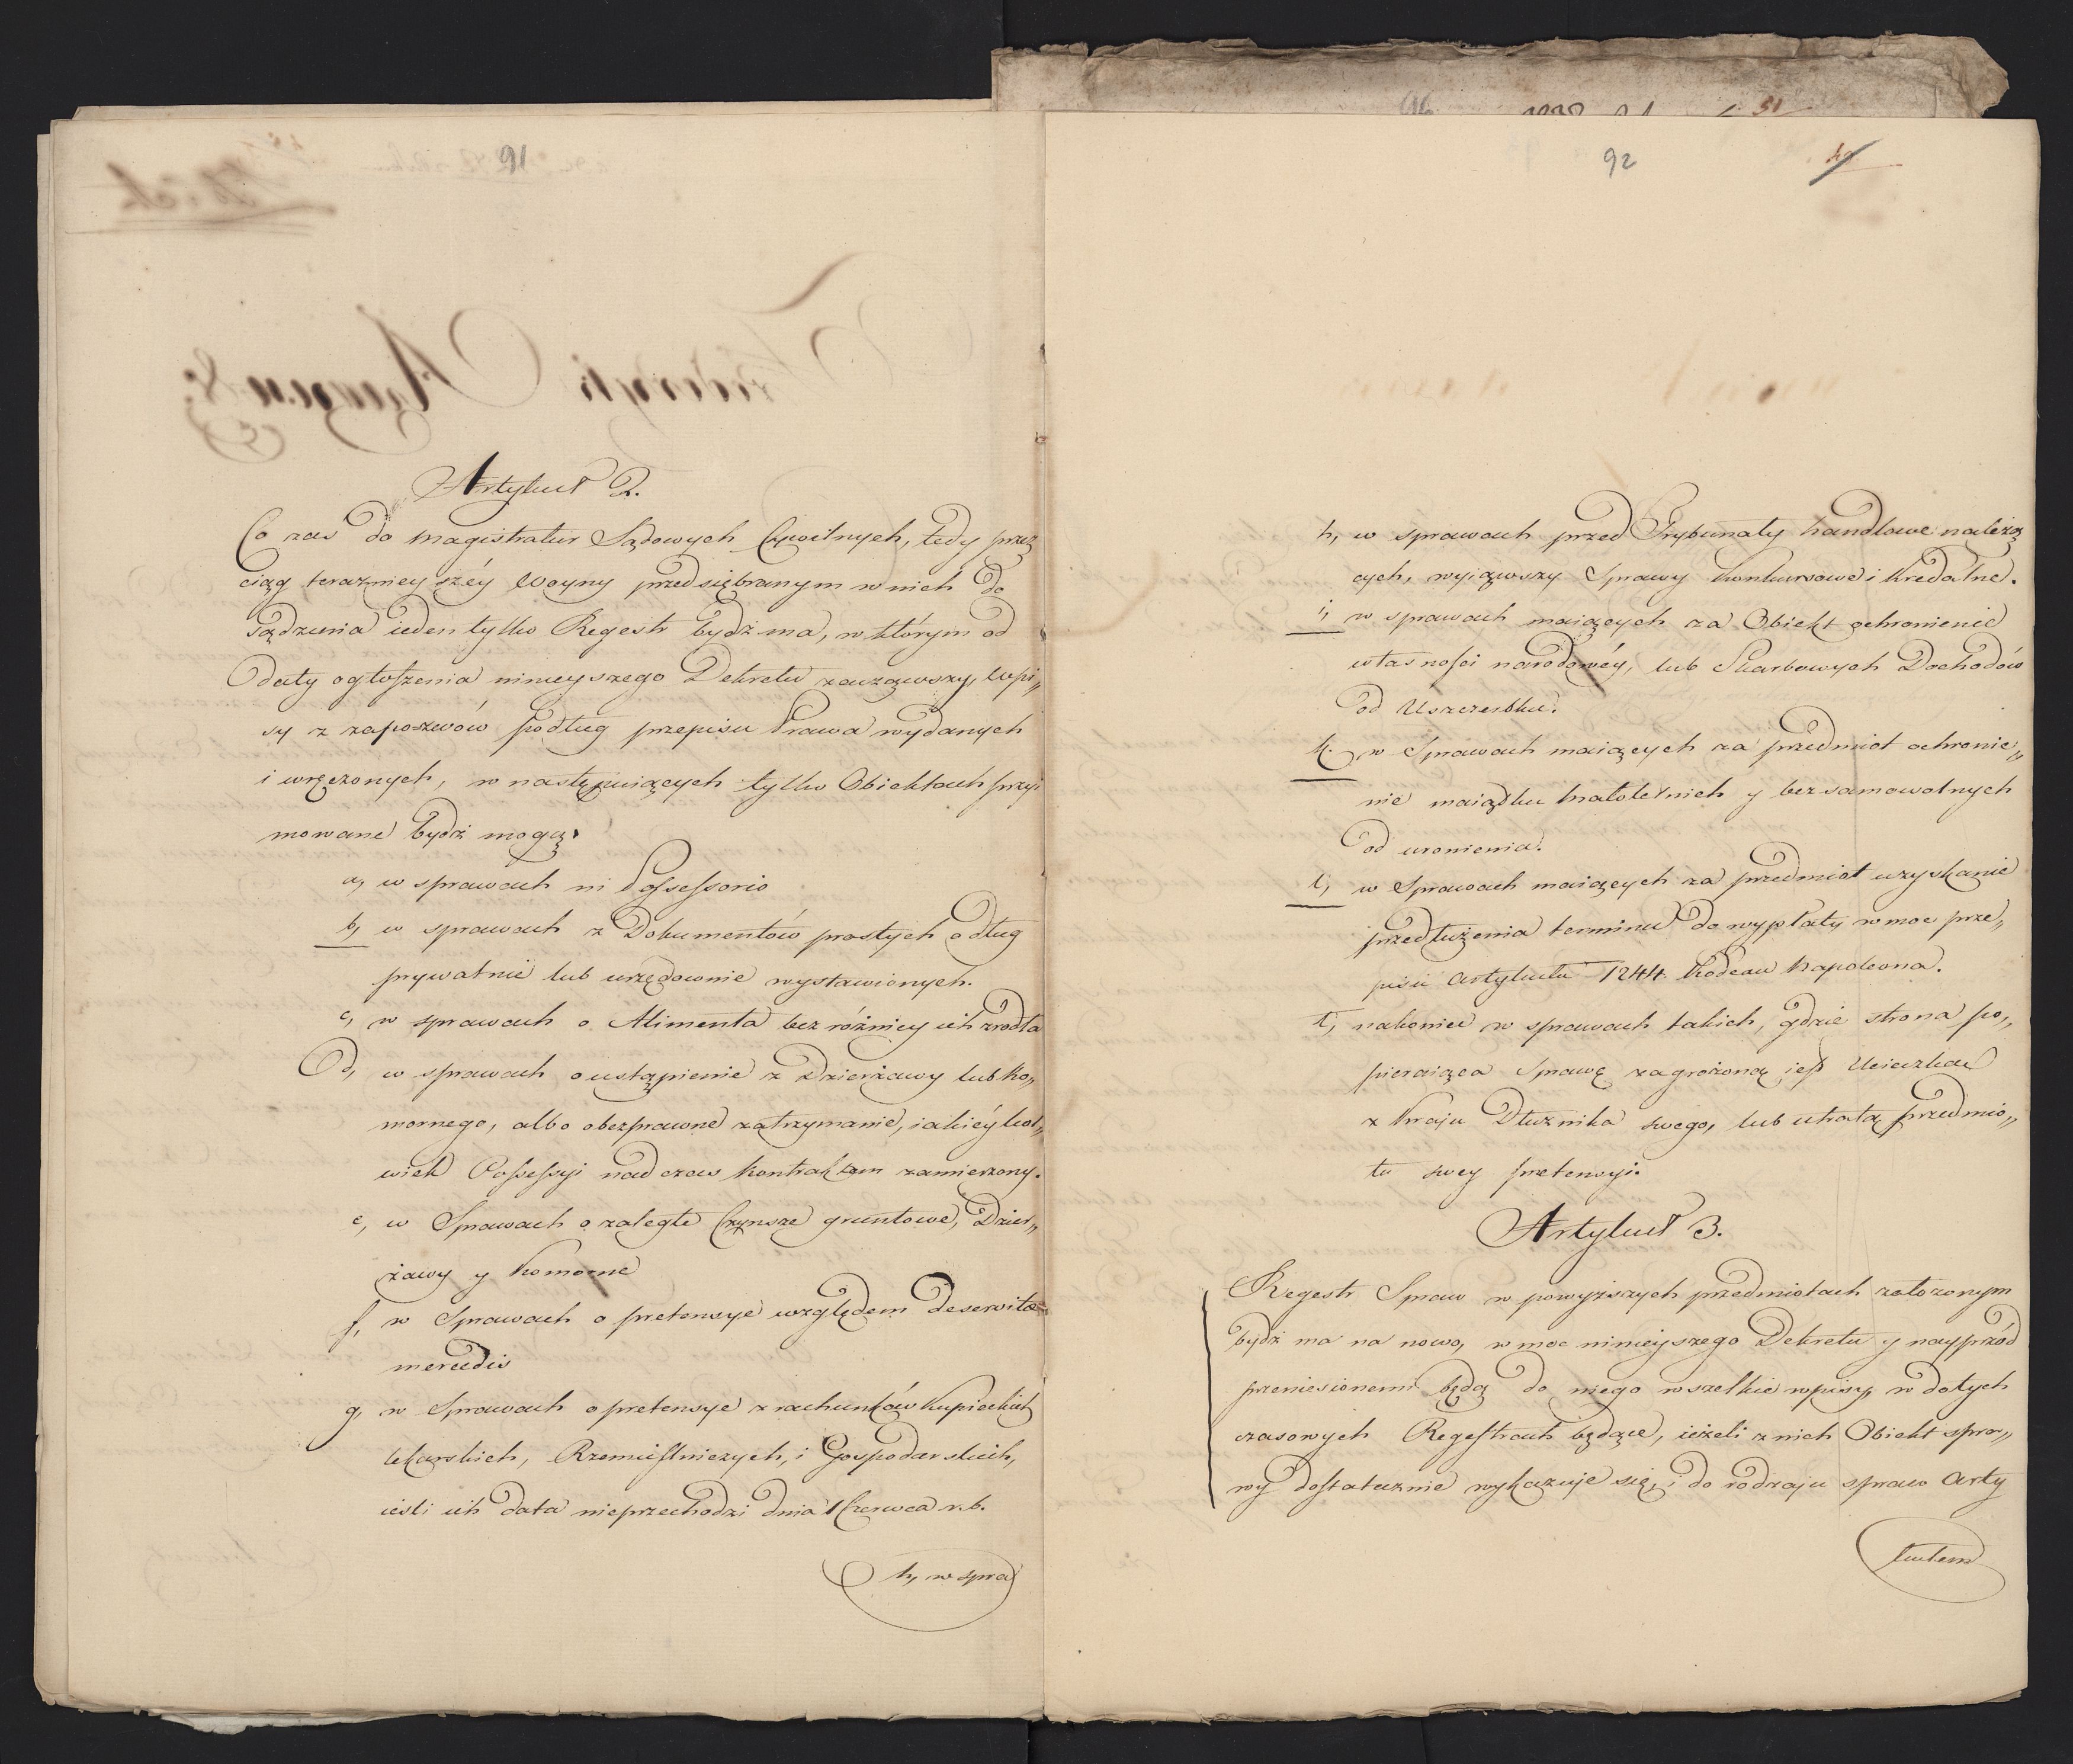 91
Artykuł 2.
Co zaś do Magistratur Sądowych Cywilnych, tedy przez
ciąg teraznieyszéy Woyny przedsiębranym w nich do
sądzenia ieden tylko Regestr bydź ma, w którym od
daty ogłoszenia ninieyszego Dekretu zacząwszy, wpi„
sy z zapozwów podług przepisu Prawa wydanych
i wręczonych, w następuiących tylko Obiektach przyi
mowane bydź mogą.
a, w sprawach in Possessorio
b, w sprawach z Dokumentów prostych o dług
prywatnie lub urzędownie wystawionych.
c, w sprawach o Alimenta bez różnicy ich zrodła
d, w sprawach o ustąpienie z Dzierżawy lub ko„
mornego, albo obezprawne zatrzymanie, iakiéykol„
wiek Possessyi nad czas kontraktem zamierzony.
e, w Sprawach o zaległe Czynsze gruntowe, Dzier„
żawy y komorne
f, w Sprawach o pretensye względem deservita
mercedis
g, w Sprawach o pretensye z rachunków kupieckich
lekarskich, Rzemieślniczych, i Gospodarskich,
ieśli ich data nieprzechodzi dnia 1 Czerwca r. b.
h, w spra
92
h, w sprawach przed Trybunały handlowe należą
cych, wyiąwszy Sprawy konkursowe i kredalne.
i, w sprawach maiących za Obiekt ochronienie
własności narodowéy, lub Skarbowych Dochodów
od Uszczerbku.
k. w Sprawach maiących za przedmiot ochronie„
nie maiątku małoletnich y bezsamowolnych
od uronienia.
l, w Sprawach maiących za przedmiot uzyskanie
przedłużenia terminu do wypłaty w moc prze„
pisu Artykułu 1244. Kodexu Napoleona.
ł, nakoniec w sprawach takich, gdzie strona po„
pieraiąca Sprawę zagrożoną iest Ucieczką
z kraju Dłużnika swego, lub utratą przedmio„
tu swey pretensyi.
Artykuł 3.
Regestr Spraw w powyższych przedmiotach założonym
bydź ma na nowo, w moc ninieyszego Dekretu y nayprzód
przeniesionemi będą do niego wszelkie wpisy, w dotych
czasowych Regestrach będące, ieżeli z nich Obiekt spra„
wy dostatecznie wykazuje się, i do rodzaju spraw Arty
kułem